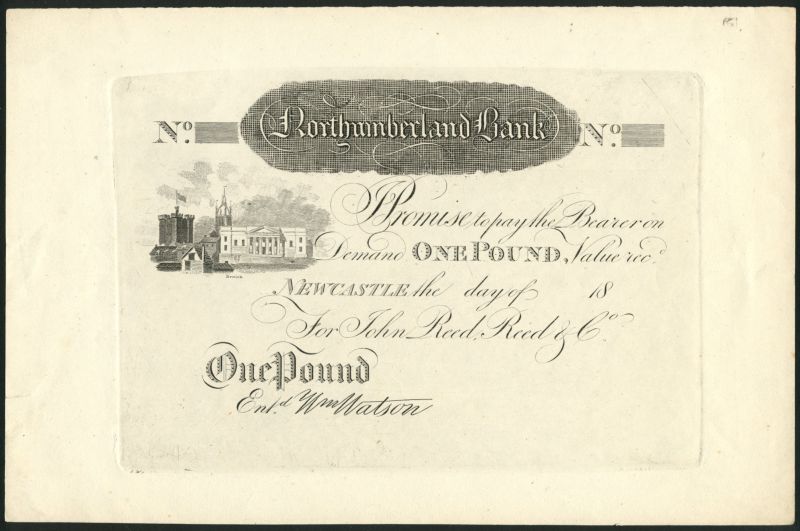 Northumberland Bank
No. No.
I Promise to pay the Bearer on
Demand ONE POUND, Value recd.
Bewick
NEWCASTLE the day of 18
For John Reed, Reed & Co.
One Pound
Ent.d Wm Watson